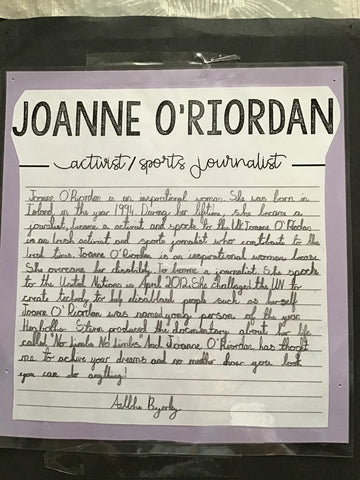 JOANNE O'RIORDAN
activist/sports journalist
Joanne O'Riordan is an inspirational woman. She was born in
Ireland in the year 1994. During her lifetime, she became a
journalist, became a activist and spoke to the UN. Joanne O'Riordan
is an Irish activist and sports jornalist who contributes to the
Irish times. Joanne O'Riordan is an inspirational woman because
She overcame her disability To become a journalist. She spoke
to the United Nations in April 2012. She challenged the UN to
create technoly to help disabled people such as herself
Joanne O'Riordan was named young person of the year.
Her brother Steven produced the documentary about her life
called, "No Limbs No Limits" And Joanne O'Riordan has thought
me to achive your dreams and no mather how you look
you can do anything!